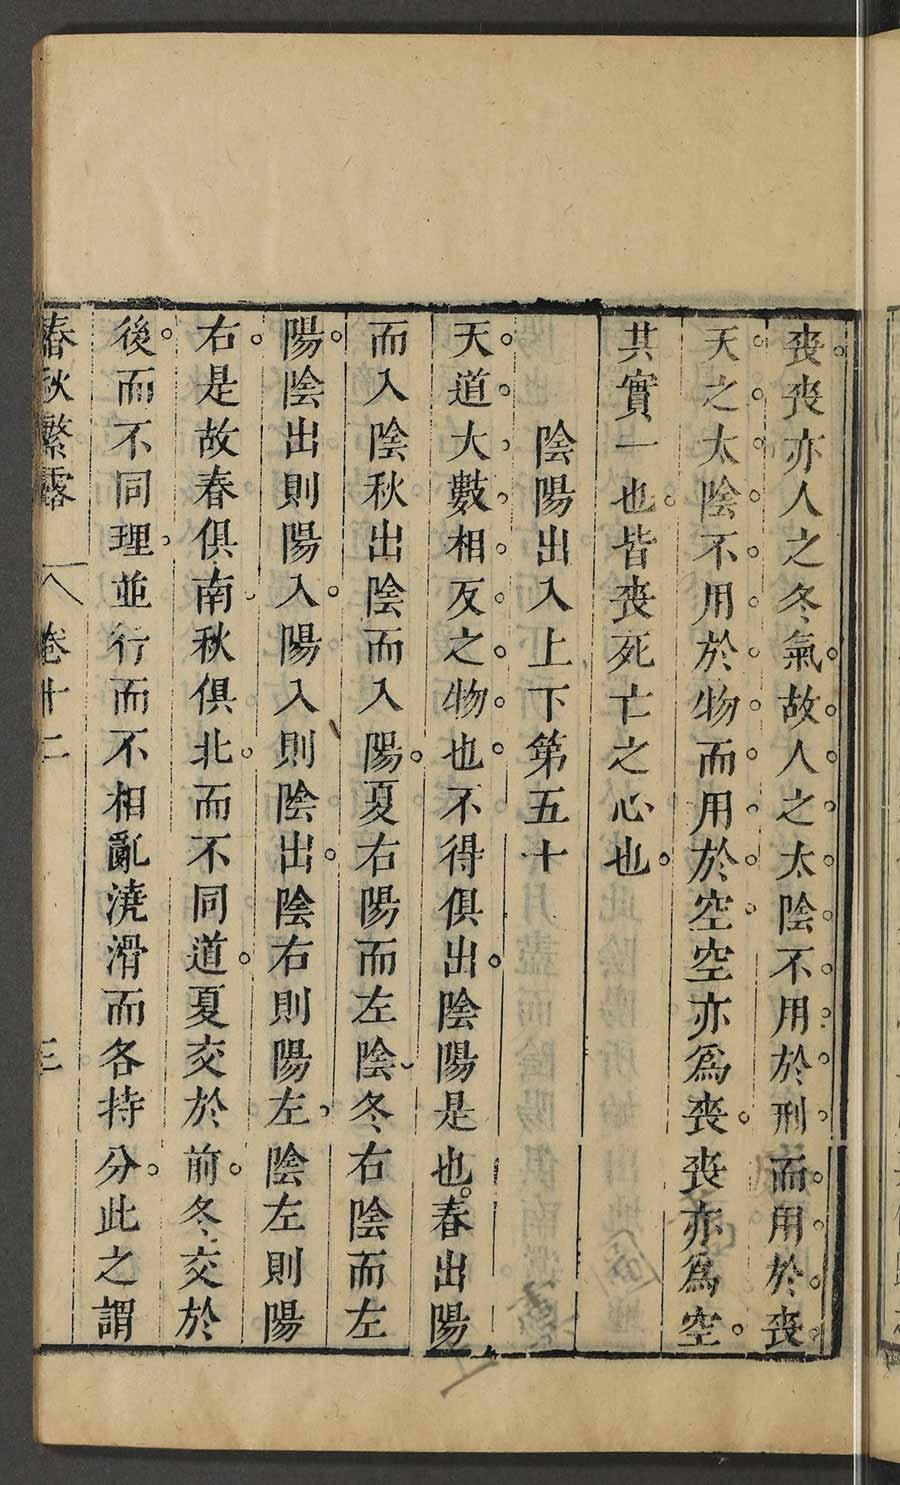 喪喪亦人之冬氣故人之太陰不用於刑而用於喪
天之太陰不用於物而用於空空亦爲喪喪亦爲空
其實一也皆喪死亡之心也
陰陽出入上下第五十
天道大數相反之物也不得俱出陰陽是也春出陽
而入陰秋出陰而入陽夏右陽而左陰冬右陰而左
陽陰出則陽入陽入則陰出陰右則陽左陰左則陽
右是故春俱南秋俱北而不同道夏交於前冬交於
後而不同理並行而不相亂澆滑而各持分此之謂
春秋繁露 卷十二 三